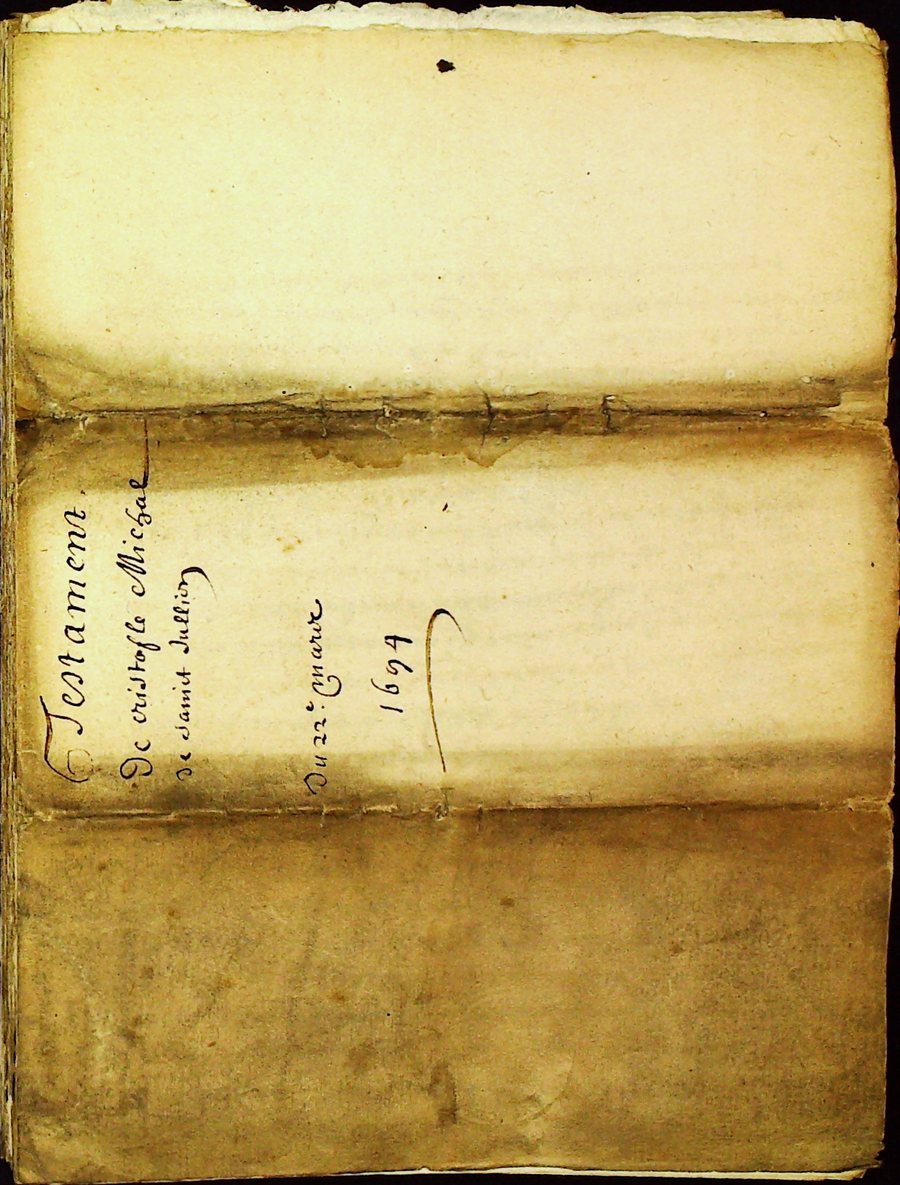 Testament
de cristofle Michal
de sainct Jullien
du 22e mars
1694